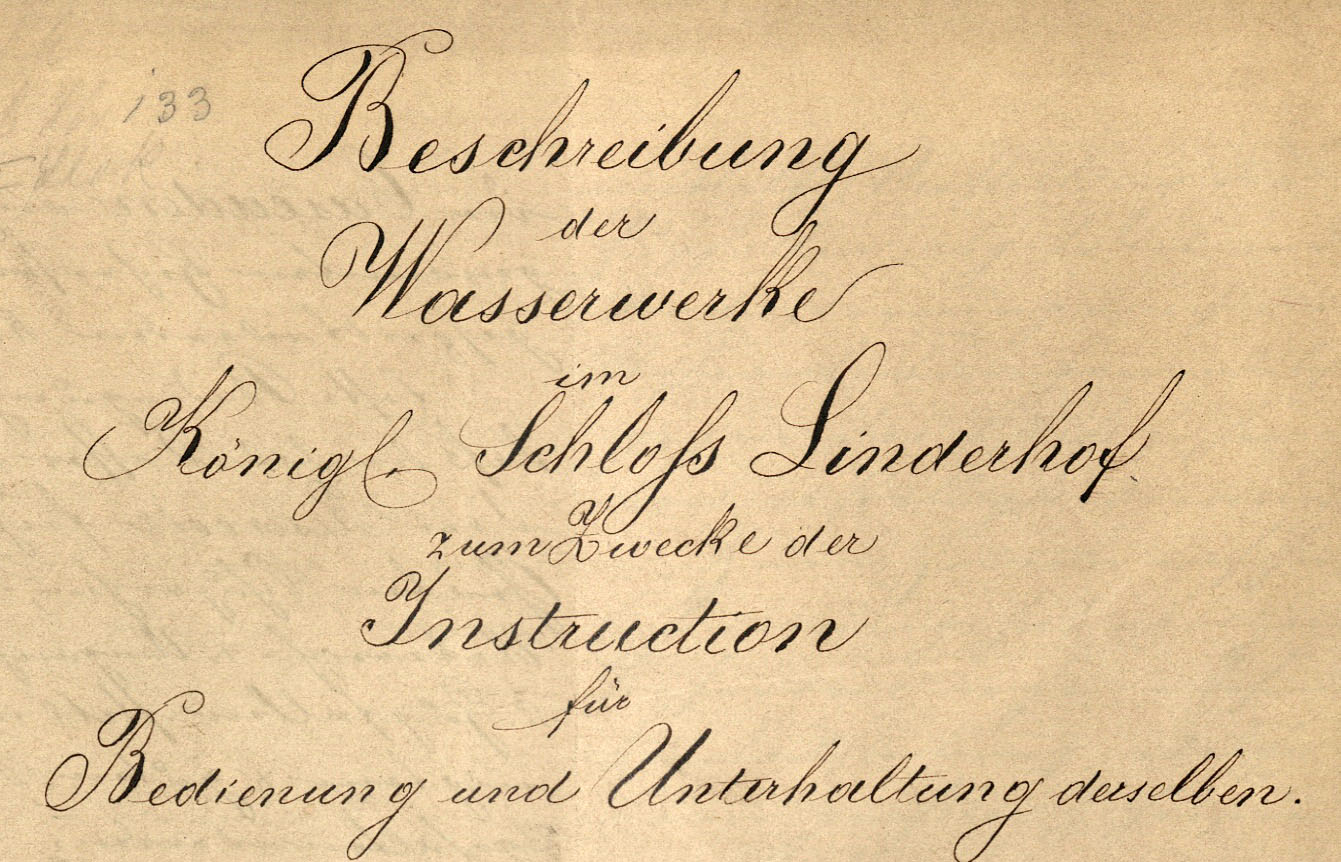 133
Beschreibung
der
Wasserwerke
im
Königl. Schloſs Linderhof
zum Zwecke der
Instruction
für
Bedienung und Unterhaltung derselben.